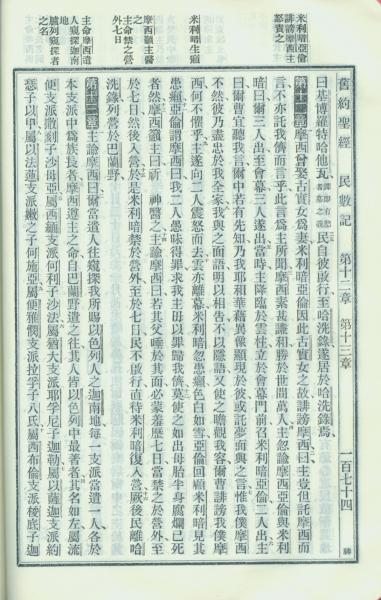 舊約聖經 民數記 第十二章 第十三章 一百七十四
米利暗亞倫
誹謗摩西主
怒責之
米利暗生癩
摩西籲主醫
之
主命禁之營
外七日
主命摩西遣
人窺探迦南
地
臚列窺探者
之名
曰基博羅特哈他瓦譯即有慾者墓之義民自彼啟行至哈洗錄遂居於哈洗錄焉
第十二章摩西曾娶古實女為妻米利暗亞倫因此古實女之故誹謗摩西曰主豈但託摩西而
言不亦託我儕而言乎此言為主所聞摩西素甚謙和勝於世間萬人主忽諭摩西亞倫與米利
暗曰爾三人出至會幕三人遂出當時主降臨於雲柱立於會幕門前召米利暗亞倫二人出主
曰爾曹宜聽我言爾中若有先知乃我耶和華藉異像顯現於彼或託夢而與之言惟我僕摩西
不然彼乃盡忠於我全家我與之面語明以相告不以隱語又使之瞻觀我容爾曹誹謗我僕摩
西何不懼乎主遂向二人震怒而去雲亦離幕米利暗忽患癩色白如雪亞倫回顧米利暗見其
患癩亞倫謂摩西曰我二人愚昧得罪求我主毋以罪歸我儕莫使之如出母胎半身腐爛已死
者然摩西籲主曰祈 神醫之主諭摩西曰若其父唾於其面而必蒙羞歷七日當禁之於營外至
於七日然後收入營於是米利暗禁於營外至於七日民不啟行直待米利暗復入營厥後民離哈
洗錄列營於巴蘭野
第十三章主諭摩西曰爾當遣人往窺探我所賜以色列人之迦南地每一支派當遣一人各於
本支派中為族長者摩西遵主之命自巴蘭野遣之往其人皆以色列中最著者其名如左屬流
便支派撒刻子沙母亞屬西緬支派何利子沙法屬猶大支派耶孚尼子迦勒屬以薩迦支派約
瑟子以甲屬以法蓮支派嫩之子何施亞屬便雅憫支派拉孚子八氏屬西布倫支派梭底子迦